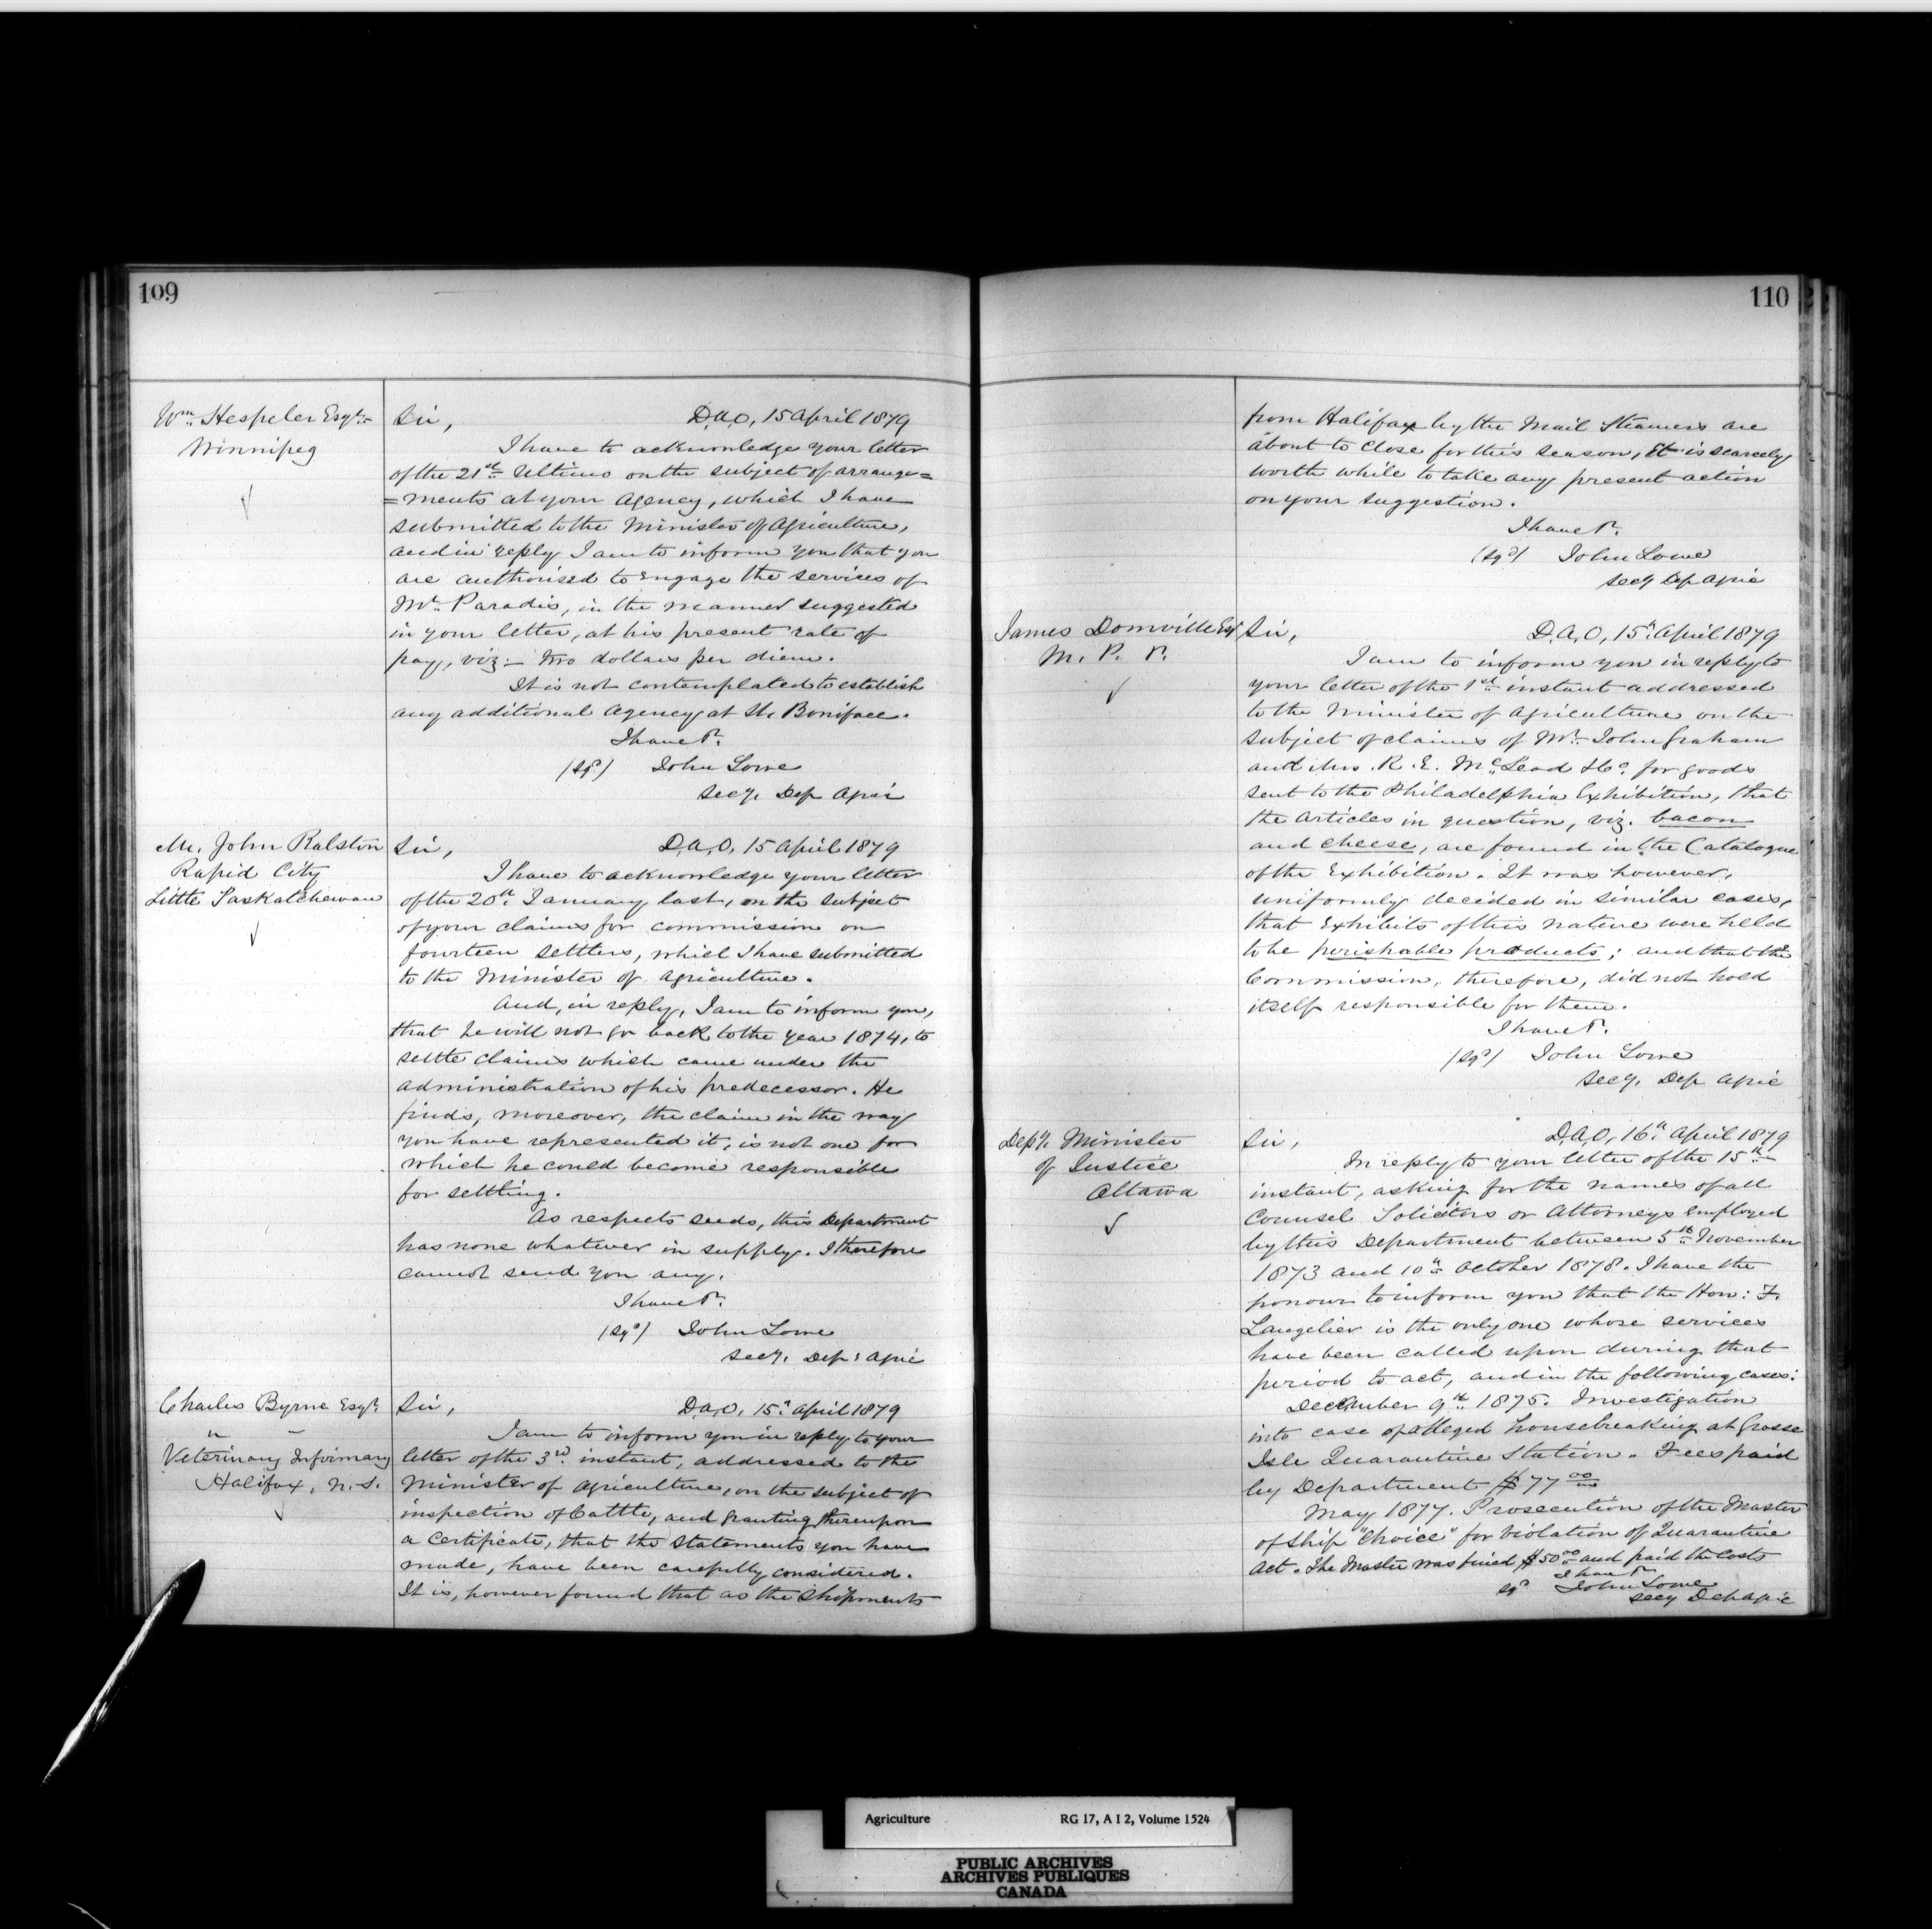 109
Wm. Hespeler Esqre.
Winnipeg
Sir, D.A.O, 15 April 1879
I have to acknowledge your letter
of the 21st Ultimo on the subject of arrange=
=ments at your Agency, which I have
submitted to the Minister of Agriculture,
and in reply I am to inform you that you
are authorised to engage the services of
Mr. Paradis, in the manner suggested
in your letter, at his present rate of
pay, viz:- two dollars per diem.
It is not contemplated to establish
any additional Agency at St. Boniface.
I have &c.
(Sgd) John Lowe
Secy. Dep Agric
Mr. John Ralston
Rapid City
Little Saskatchewan
Sir, D.A.O, 15 April 1879
I have to acknowledge your letter
of the 20th January last, on the subject
of your claims for commission on
fourteen settlers, which I have submitted
to the Minister of Agriculture.
And, in reply, I am to inform you,
that he will not go back to the year 1874, to
settle claims which came under the
administration of his predecessor. He
finds, moreover, the claim in the way
you have represented it, is not one for
which he could become responsible
for settling.
As respects seeds, this Department
has none whatever in supply. I therefore
cannot send you any.
I have &c.
(Sgd) John Lowe
Secy. Dep: Agric
Charles Byrne Esqr.
Veterinary Infirmary
Halifax, N.S.
Sir, D.A.O, 15th April 1879
I am to inform you in reply to your
letter of the 3rd instant, addressed to the
Minister of Agriculture, on the subject of
inspection of Cattle, and granting thereupon
a Certificate, that the statements you have
made, have been carefully considered.
It is, however found that as the shipments
110
from Halifax by the Mail Steamers are
about to close for this season, it is scarcely
worth while to take any present action
on your suggestion.
I have &c.
(Sgd) John Lowe
Secy Dep Agric
James Domville Esqr
M. P. &c.
Sir, D.A.O, 15th April 1879
I am to inform you in reply to
your letter of the 1st instant addressed
to the Minister of Agriculture on the
subject of claims of Mr. John Graham
and R. E. McLeod & Co. for goods
sent to the Philadelphia Exhibition, that
the articles in question, viz. bacon
and cheese, are found in the Catalogue
of the Exhibition. It was however,
uniformly decided in similar cases,
that Exhibits of this nature were held
to be perishable products; and that the
Commission, therefore, did not hold
itself responsible for them.
I have &c.
(Sgd) John Lowe
Secy. Dep Agric
Depy. Minister
of Justice
Ottawa
Sir, D.A.O, 16th April 1879
In reply to your letter of the 15th
instant, asking for the names of all
Counsel Solicitors or Attorneys employed
by this Department between 5th November
1873 and 10th October 1878. I have the
honour to inform you that the Hon: F.
Langelier is the only one whose services
have been called upon during that
period to act, and in the following cases:
December 9th 1875. Investigation
into case of alleged housebreaking at Grosse
Isle Quarantine Station. Fees paid
by Department $77.00
May 1877. Prosecution of the Master
of Ship "Choice" for violation of Quarantine
Act. The Master was fined $50.00 and paid the costs
I have &c.
Sgd John Lowe
Secy Dep Agric
Agriculture RG 17, A I 2, Volume 1524
PUBLIC ARCHIVES
ARCHIVES PUBLIQUES
CANADA